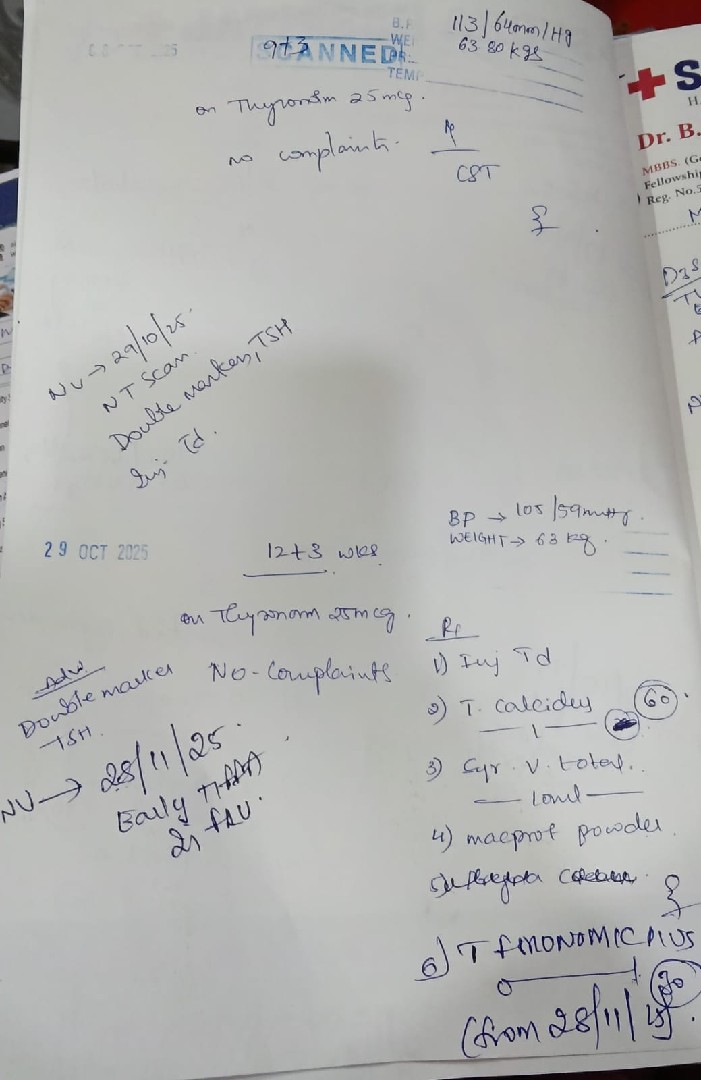 B.P 113/64mm/Hg
SCANNED 9+3 WEI 63.80 kgs
TEMP
on Thyronorm 25mcg.
no complaints.
CST
NV → 29/10/25
NT Scan
Double marker, TSH
Inj Td.
29 OCT 2025
12+3 wks
BP → 105/59mmHg.
WEIGHT → 63 kg.
on Thyronorm 25mcg.
No-Complaints
Adv
Double marker
TSH.
NV → 28/11/25.
Early TIFFA
Rx
1) Inj Td
2) T. calcidus 60
1
3) Syr. V. total.
10ml
4) macprot powder
5)
6) T fERONOMIC PlUS
0 1 30
(from 28/11/25).
+ S
Dr. B.
MBBS. (Ge
Fellowship
Reg. No.5